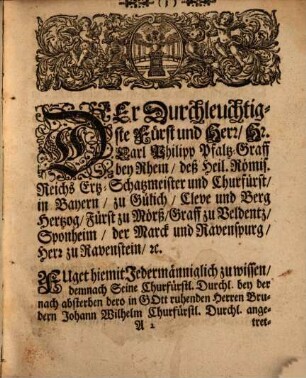 ( 3 )
DEr Durchleuchtig-
ste Fürst und Herr/ Hr.
Carl Philipp Pfaltz-Graff
bey Rhein / deß Heil. Römis.
Reichs Ertz-Schatzmeister und Churfürst/
in Bayern / zu Gülich / Cleve und Berg
Hertzog/ Fürst zu Mörß/ Graff zu Veldentz/
Sponheim / der Marck und Ravenspurg /
Herr zu Ravenstein/ ꝛc.
Füget hiemit Jedermänniglich zu wissen/
demnach Seine Churfürstl. Durchl. bey der
nach absterben dero in GOtt ruhenden Herren Bru-
dern Johann Wilhelm Churfürstl. Durchl. ange-
A 2 tret-